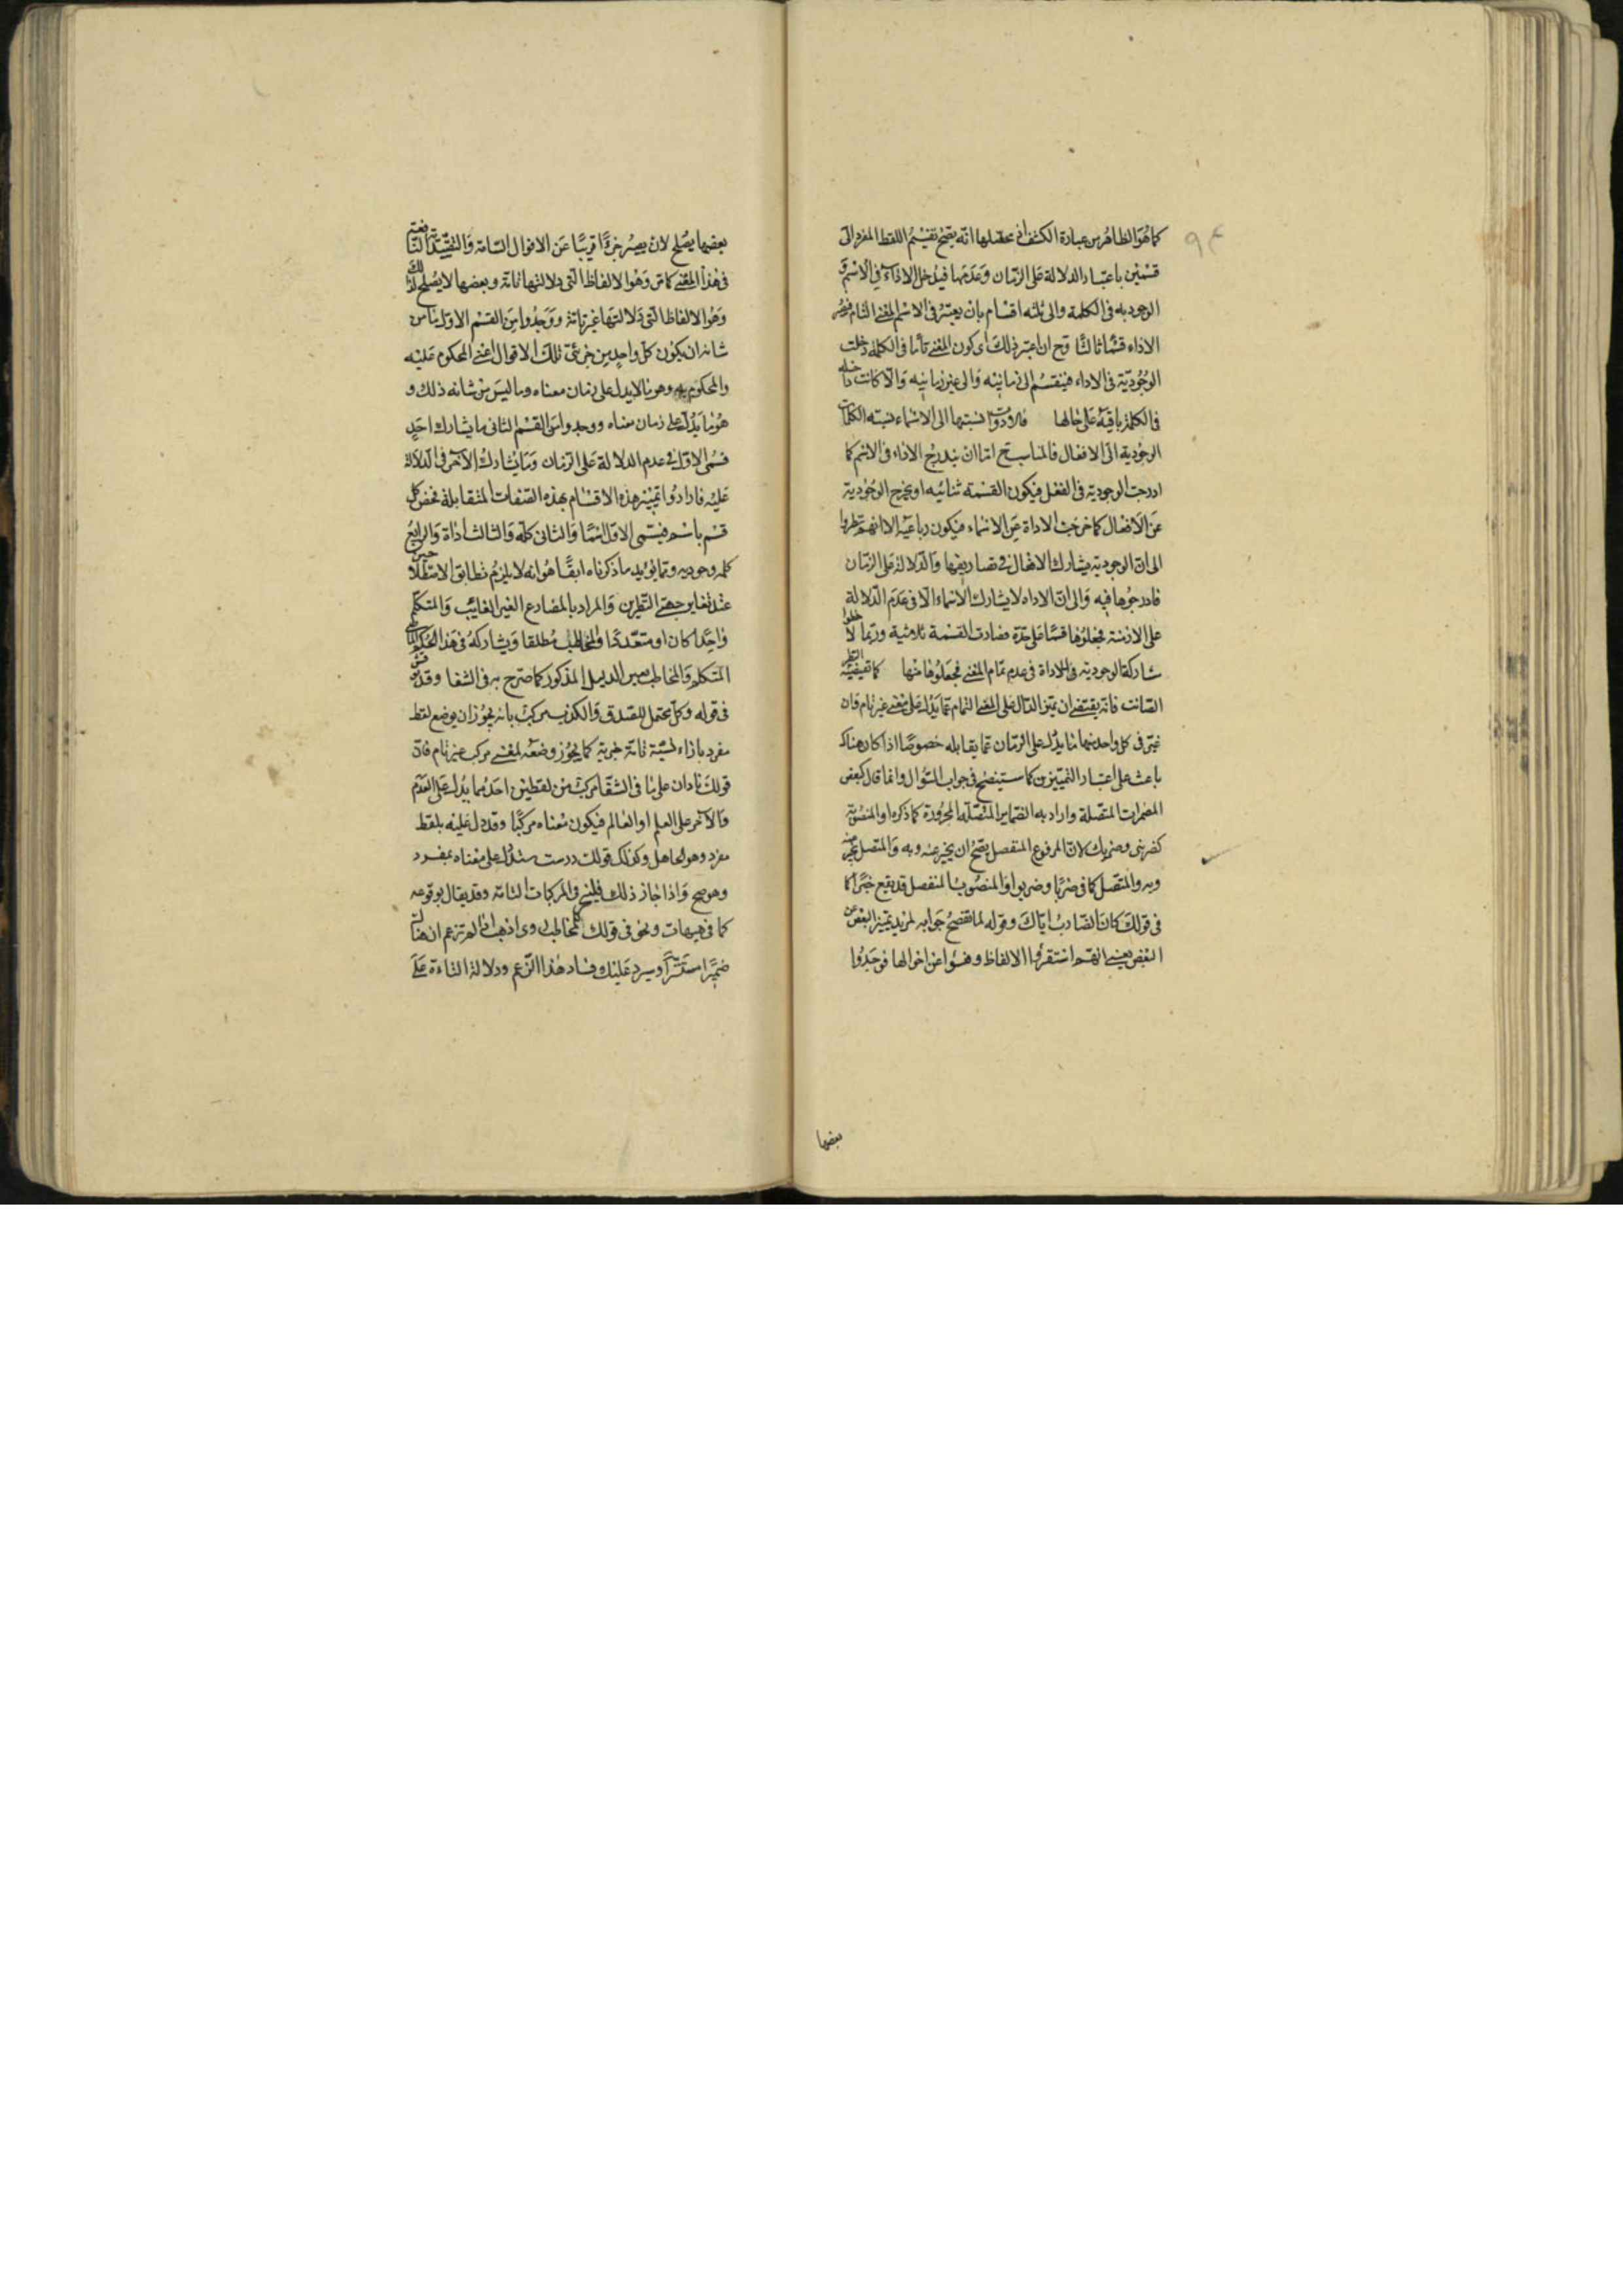 ٩٤
كما هو الظاهر من عبارة الكشف اذ محصلها انه يصح تقسيم اللفظ المفرد الى
قسمين باعتبار الدلالة على الزمان وعدمها فيدخل الاداة في الاسم و
الوجوديه في الكلمة والى ثلثه اقسام بان يعتبر في الاسم المعنى التام فيصير
الاداه قسما ثالثا وح ان اعتبر ذلك اى كون المعنى تاما في الكلمه دخلت
الوجوديّة في الاداه فينقسم الى زمانيه والى غير زمانيه والا كانت داخله
في الكلمة باقية على حالها نسبتها الى الاسماء نسبته الكلمات
الوجودية الى الافعال فالمناسب ح اما ان يندرج الاداه في الاسم كما
ادرجت الوجوديه في الفعل فيكون القسمة ثنائيه او يخرج الوجودية
عن الافعال كما خرجت الاداة عن الاسماء فيكون رباعيه الا انهم نظروا
الى ان الوجودية يشارك الافعال في تصاريفها والدلالة على الزمان
فادرجوها فيه والى ان الاداه لا يشارك الاسماء الا في عدم الدلالة
على الازمنة فجعلوها قسما على حدة فصارت القسمة ثلاثية وربما لاحظوا
مشاركة الوجودية في الاداة في عدم تمام المعنى فجعلوها منها كما يقتضيه النظر
الصائب فانه يقتضى ان يميز الدال على المعنى التمام عما يدل على معنى غير تام فان
غير في كل واحد منهما ما يدل على الزمان عما يقابله خصوصا اذا كان هناك
باعث على اعتبار التميزين كما ستيضح في جواب السؤال وانما قال كبعض
المضمرات المتصلة واراد به الضماير المتصلة المجرورة كما ذكره او المنصوبة
كضربنى وضربك لان المرفوع المنفصل يصح ان يخبر عنه وبه والمتصل يخبر عنه
وبه والمتصل كما في ضربا وضربوا والمنصوب المنفصل قد يقع خبرا كما
في قولك كان الضارب اياك وقوله لما نقصح جوابه لمزيد تميز البعض عن
البعض يعنى انهم استقرأوا الالفاظ وفتشوا عن احوالها فوجدوا
بعضها
بعضها يصلح لان يصير جزءا قريبا عن الاقوال التامة والتقييدية النا
في هذا المعنى كما من وهو الالفاظ التى دلالتها تامة وبعضها لا يصلح لذلك
وهو الالفاظ التى دلالتها غير تامة ووجدوا من القسم الاول ما من
شانه ان يكون كل واحد من جزئى تلك الاقوال اعنى المحكوم عليه
والمحكوم به وهو ما لا يدل على زمان معناه وما ليس من شانه ذلك و
هو ما يدل على زمان معناه ووجدوا من القسم الثانى ما يشارك احد
قسمى الاول في عدم الدلالة على الزمان وما يشارك الآخر في الدلالة
عليه فارادوا تميز هذه الاقسام بهذه الصفات المتقابلة فخص كل
قسم باسم فيسمى الاول اسما والثانى كلمه والثالث اداة والرابع
كلمه وجوديه ومما يؤيد ما ذكرناه ايضا هو انه لا يلزم تطابق الاصطلاحين
عند تغاير جهتى النظرين والمراد بالمضارع الغير الغائب والمتكلم
واحدا كان او متعددا والمخاطب مطلقا ويشاركه في هذا الحكم
المتكلم والمخاطب بعين الدليل المذكور كما صرح به في الشفا وقد
في قوله وكل محتمل للصدق والكذب مركب بانه يجوز ان يوضع لفظ
مفرد بازاء نسبة تامة خبرية كما يجوز وضعه لمعنى مركب غير تام فان
قولك نادان على ما في الشفا مركب من لفظين احدهما يدل على العدم
والآخر على العلم او العالم فيكون معناه مركبا وقد دل عليه بلفظ
مفرد وهو الجاهل وكذلك قولك درست يدل على معناه بمفرد
وهو صح واذا جاز ذلك فليجز في المركبات التامة وقد يقال بوقوعه
كما في هيهات ونحو في قولك للمخاطب
ضميرا مستترا وسيرد عليك فساد هذا الزعم ودلالة التاءة على